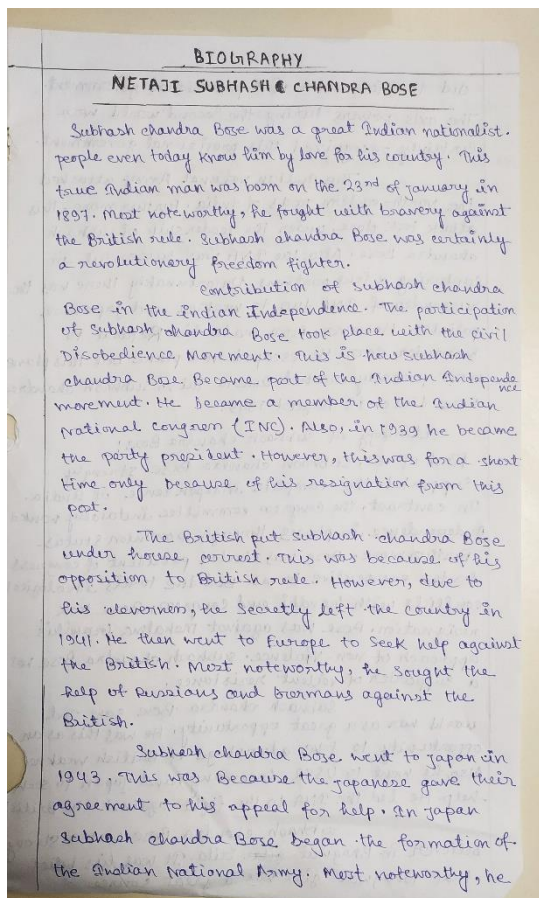 BIOGRAPHY
NETAJI SUBHASH CHANDRA BOSE
Subhash chandra Bose was a great Indian nationalist.
people even today know him by love for his country. This
true Indian man was born on the 23rd of january in
1897. Most noteworthy, he fought with bravery against
the British rule. Subhash chandra Bose was certainly
a revolutionery freedom fighter.
Contribution of subhash chandra
Bose in the indian Independence. The participation
of Subhash chandra Bose took place with the civil
Disobedience Movement. This is how subhash
chandra Bose Became part of the Indian Independence
movement. He became a member of the Indian
National Congress (INC). Also, in 1939 he became
the party president. However, this was for a short
time only because of his resignation from this
post.
The British put subhash chandra Bose
under house arrest. This was because of his
opposition to British rule. However, due to
his cleverness, he secretly left the country in
1941. He then went to Europe to seek help against
the British. Most noteworthy, he sought the
help of Russians and Germans against the
British.
Subhash chandra Bose went to japan in
1943. This was Because the japanese gave their
agreement to his appeal for help. In japan
subhash chandra Bose began the formation of
the Indian National Army. Most noteworthy, he